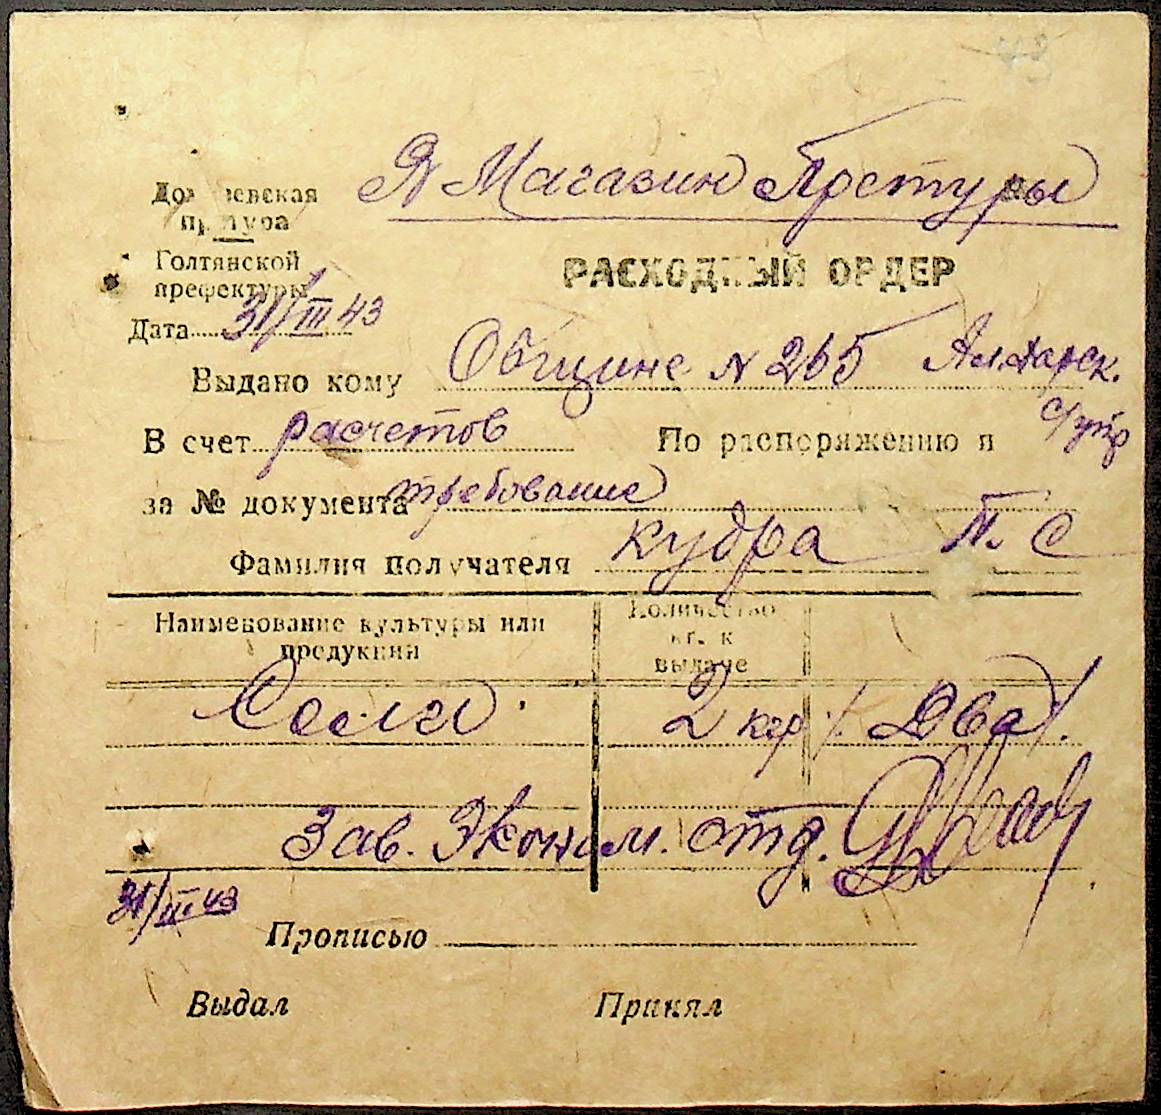 В Магазин Претуры
претура
Голтянской
префектуры
РАСХОДНЫЙ ОРДЕР
Дата 31/III 43
Выдано кому Общине N 265
с/упр
В счет расчетов По распоряжению и
за № документа требование
Фамилия получателя Кудра П. С
Наименование культуры или продукции
Количество кг. к выдаче
Соли 2 кгр /. Два /.
Зав. Эконом. отд.
31/III 43
Прописью
Выдал Принял